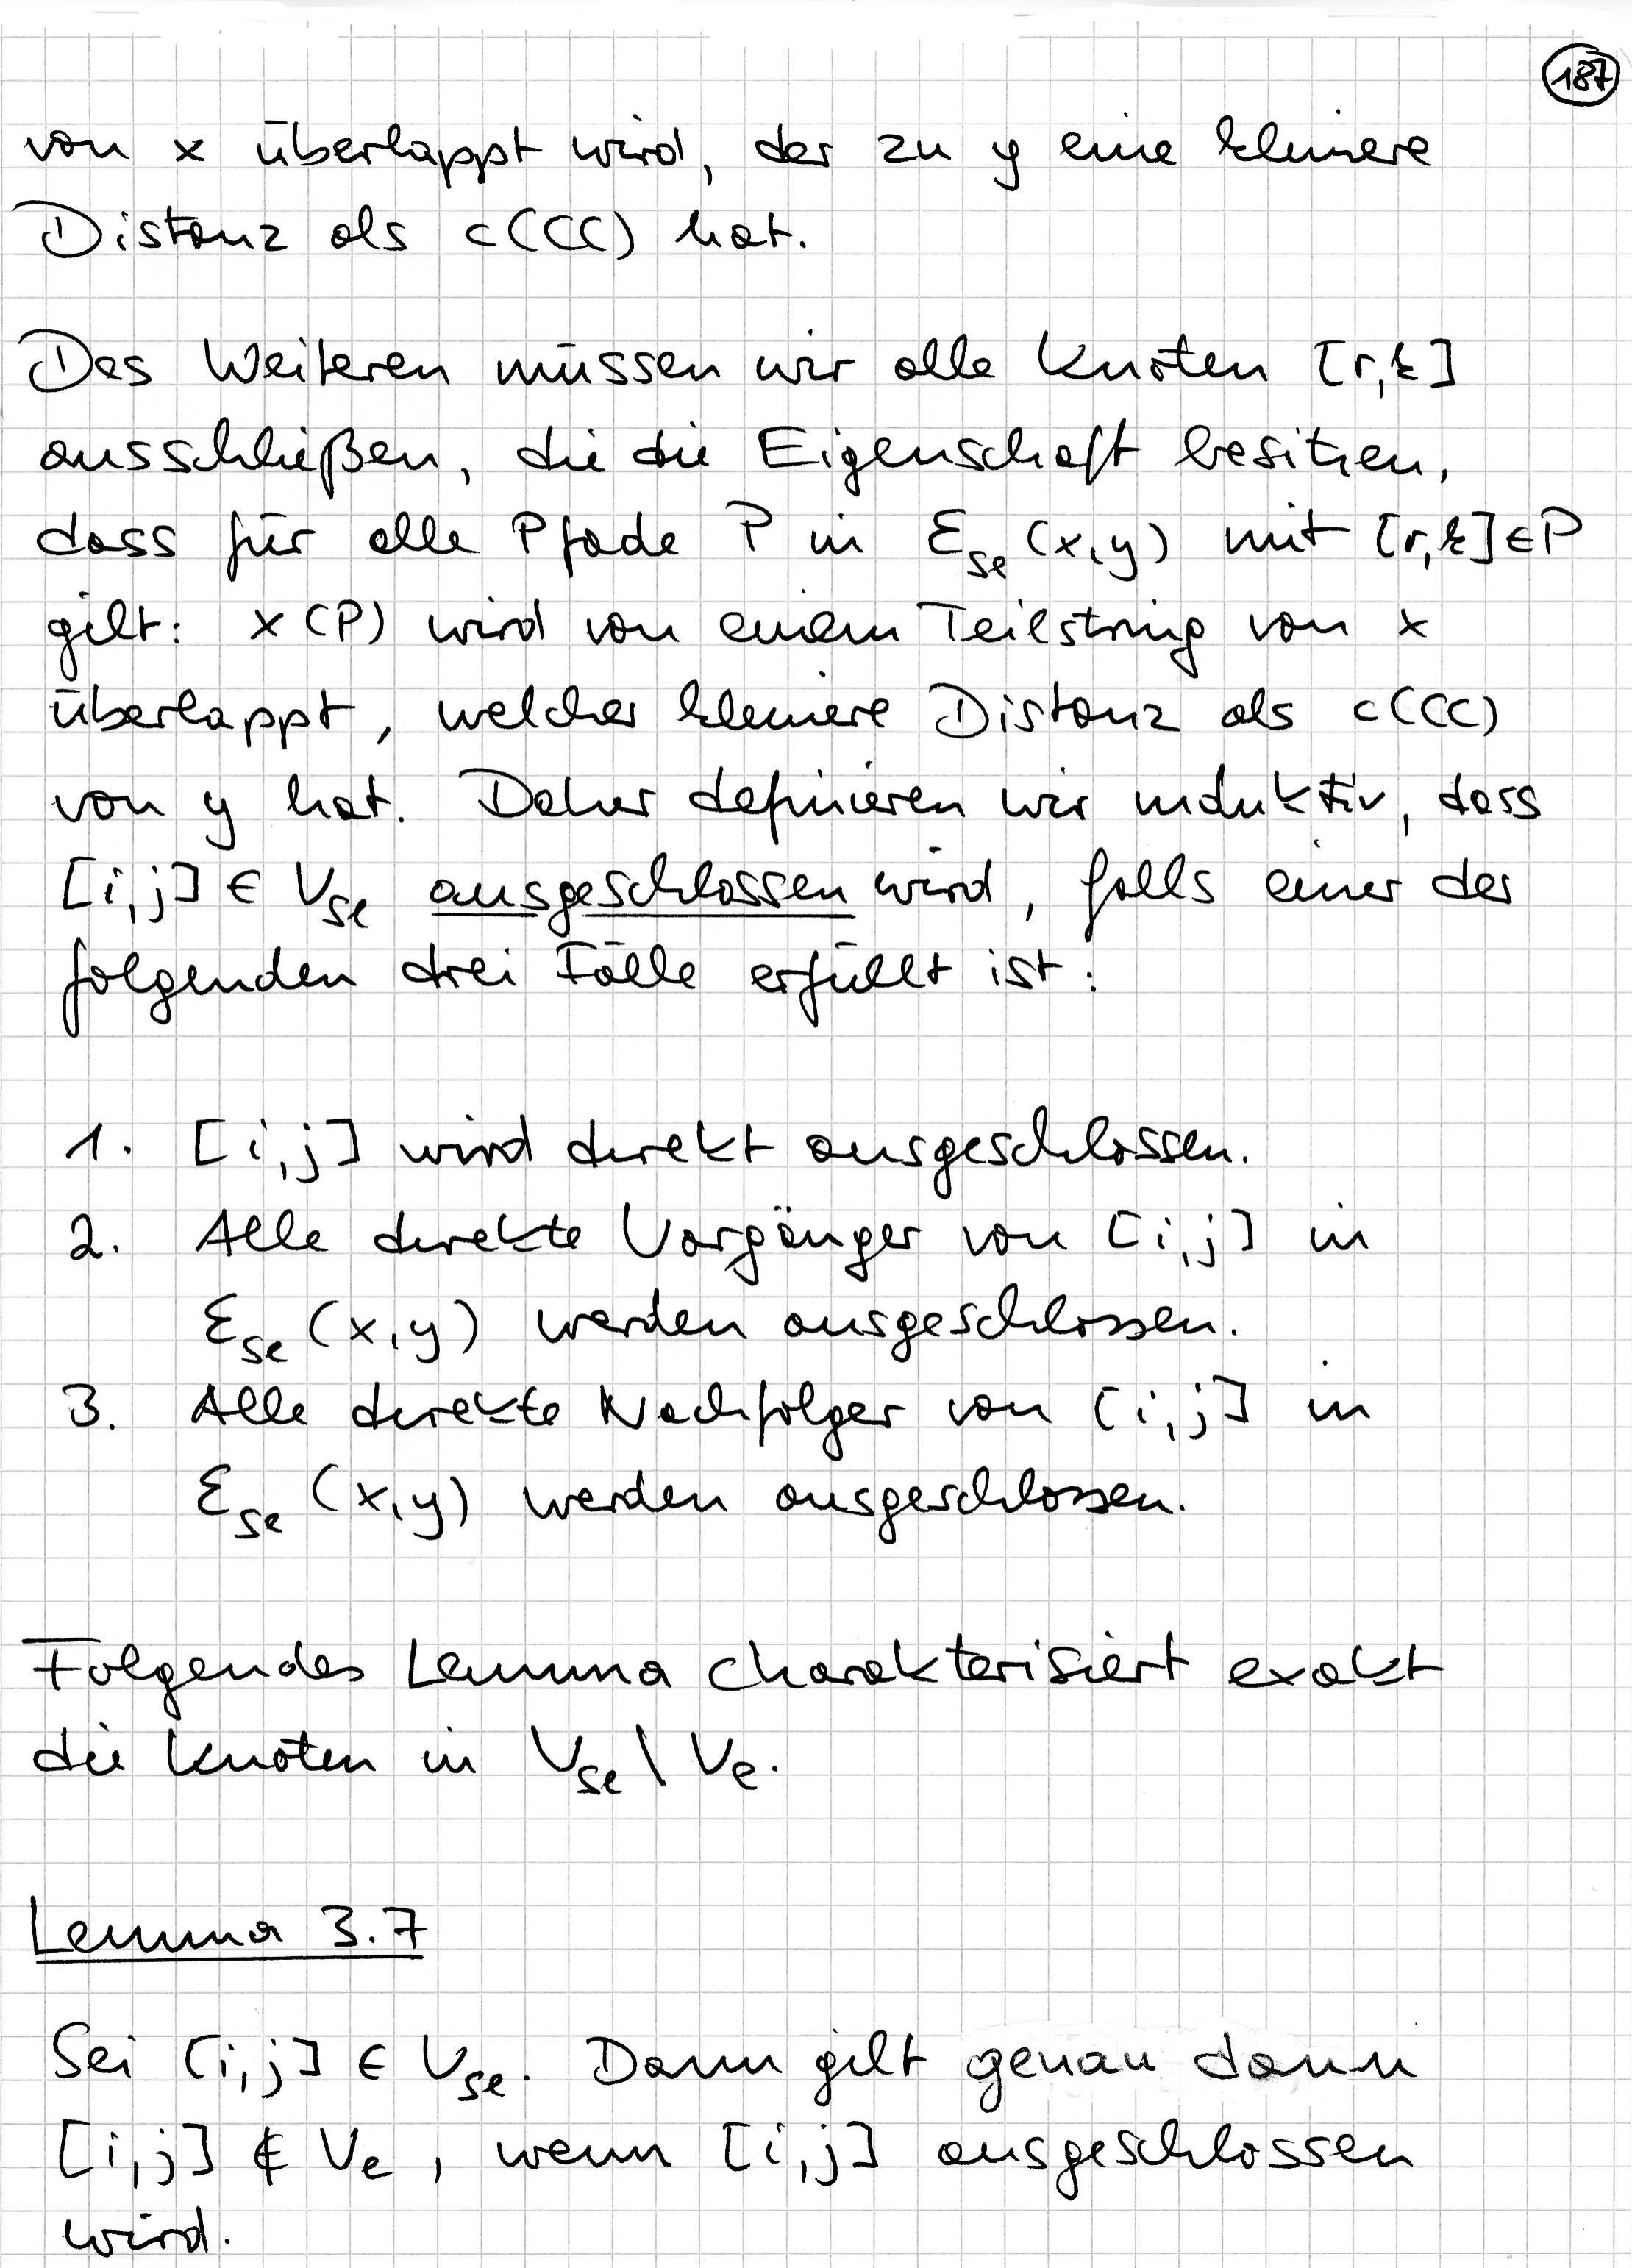 187
von x überlappt wird, der zu y eine kleinere
Distanz als c(CC) hat.
Des Weiteren müssen wir alle Knoten [r,k]
ausschließen, die die Eigenschaft besitzen,
dass für alle Pfade P in ℰ_se (x,y) mit [r,k]∈P
gilt: x(P) wird von einem Teilstring von x
überlappt, welcher kleinere Distanz als c(CC)
von y hat. Daher definieren wir induktiv, dass
[i,j] ∈ V_se ausgeschlossen wird, falls einer der
folgenden drei Fälle erfüllt ist:
1. [i,j] wird direkt ausgeschlossen.
2. Alle direkte Vorgänger von [i,j] in
ℰ_se (x,y) werden ausgeschlossen.
3. Alle direkte Nachfolger von [i,j] in
ℰ_se (x,y) werden ausgeschlossen.
Folgendes Lemma charakterisiert exakt
die Knoten in V_se \ V_e.
Lemma 3.7
Sei [i,j] ∈ V_se. Dann gilt genau dann
[i,j] ∉ V_e, wenn [i,j] ausgeschlossen
wird.